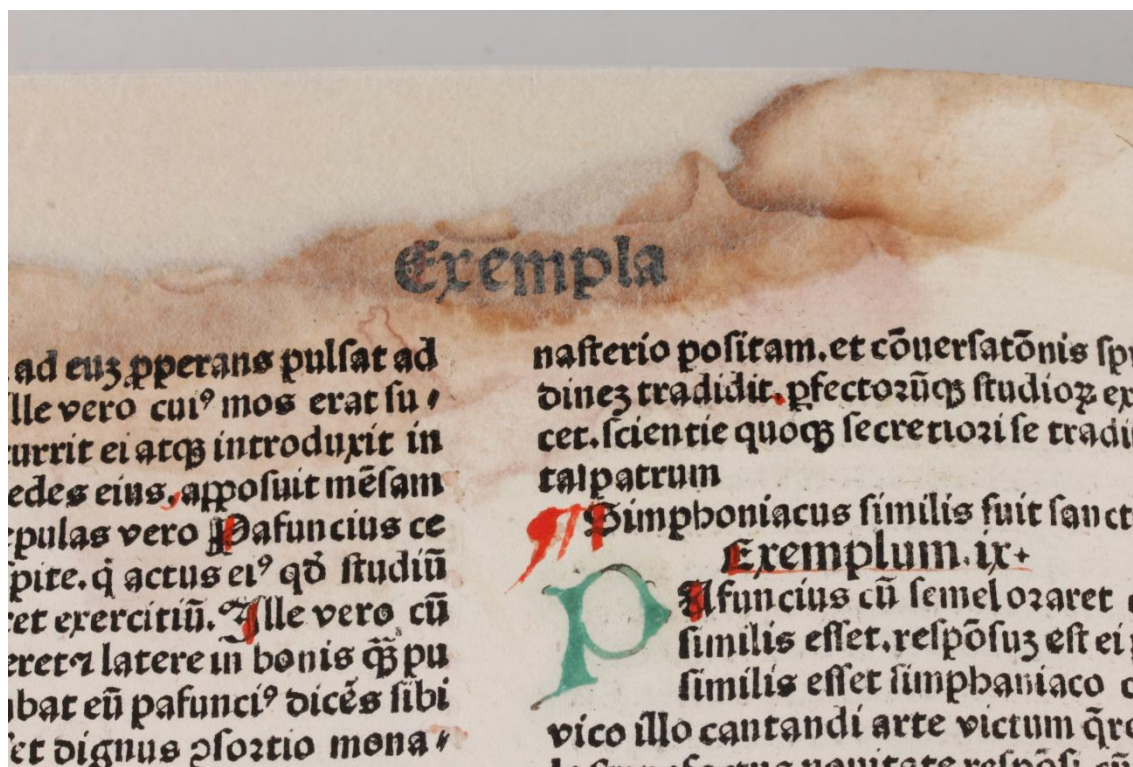 Exempla
ad euʒ ꝓperans pulſat ad
lle vero cuiꝰ mos erat ſu
currit ei atqꝫ introduxit in
edes eius, appoſuit mēſam
epulas vero Pafuncius ce
pite. q̇ actus eiꝰ qď ſtudiū
ret exercitiū. Ille vero cū
eret ⁊ latere in bonis qꝫ pu
bat eū pafunciꝰ dicēs ſibi
et dignus ꝯſortio mona
naſterio poſitam. et cōuerſatōnis
dineʒ tradidit. ꝑfectorūqꝫ ſtudioꝝ ex
cet. ſcientie quoqꝫ ſecretiori ſe tradi
tal patrum
¶ Simphoniacus ſimilis fuit ſanct
Exemplum. ix.
PAfuncius cū ſemel oraret
ſimilis eſſet. reſpōſuʒ eſt ei
ſimilis eſſet ſimphaniaco
vico illo cantandi arte victum q̄re
nouitate reſpōſi cū